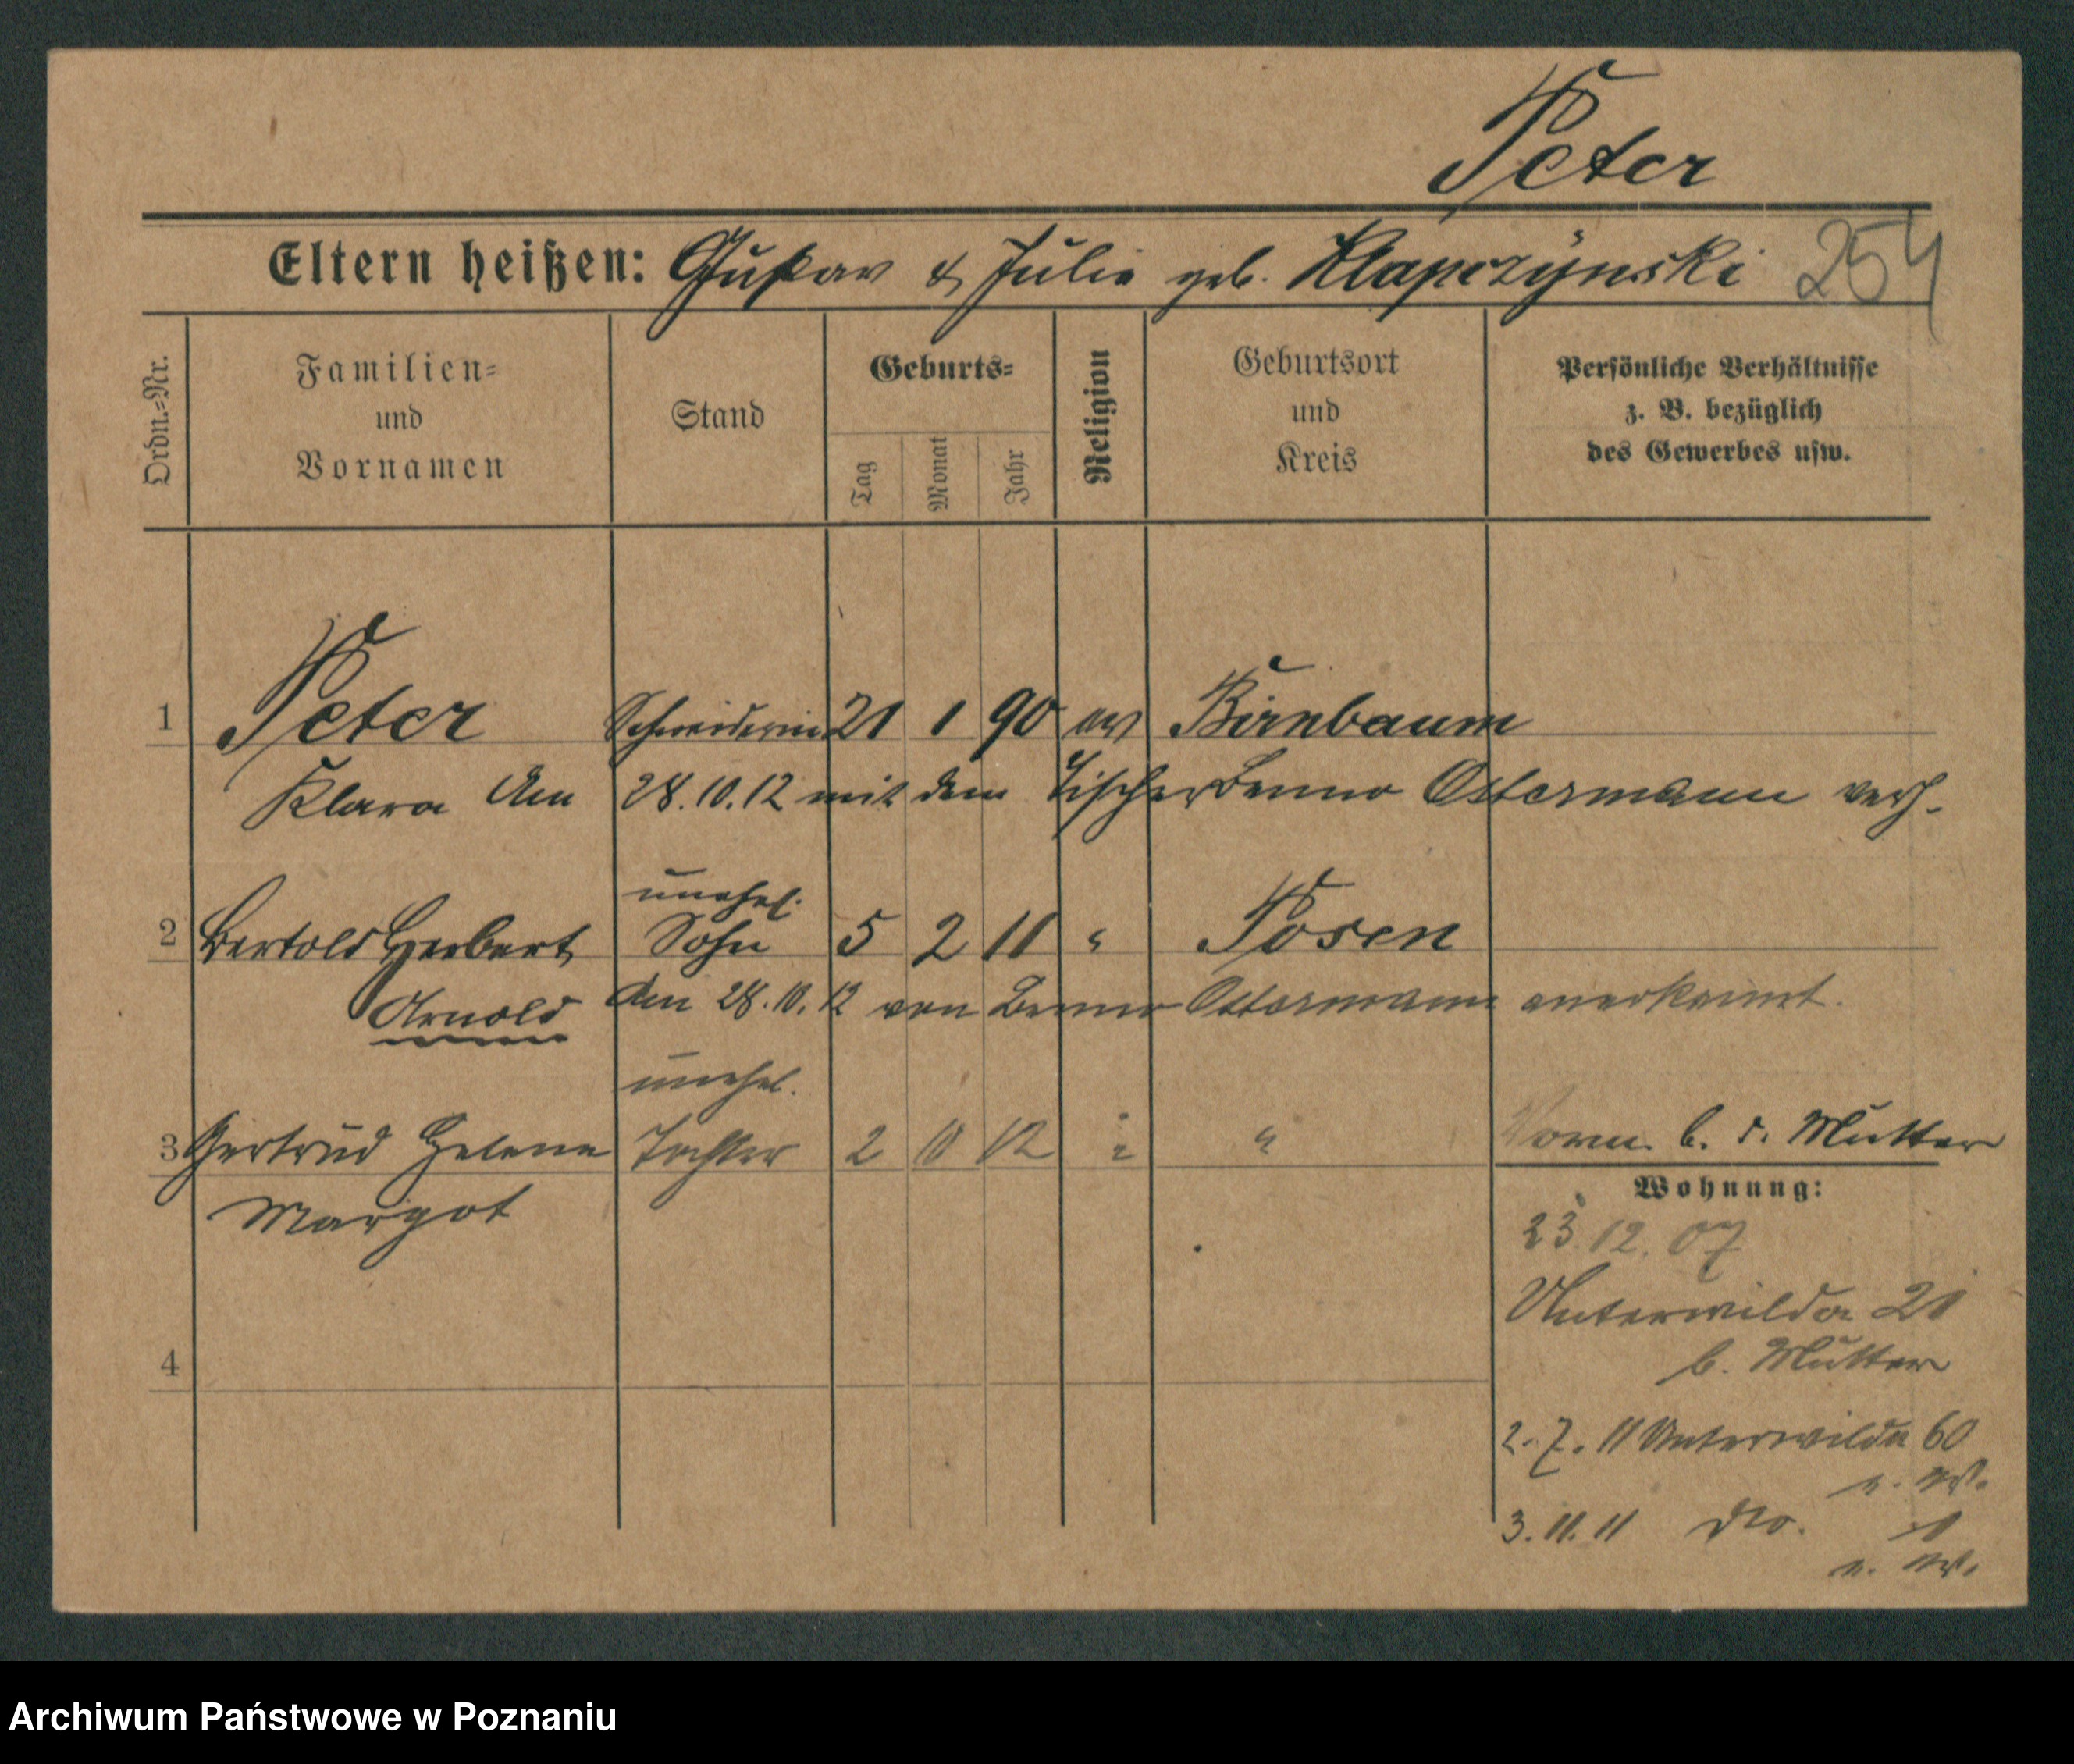 Peter
Eltern heißen: Gustav & Julie geb. Klapczynski 254
Ordn.-Nr.
Familien-
und
Vornamen
Stand
Geburts-
Tag
Monat
Jahr
Religion
Geburtsort
und
Kreis
Persönliche Verhältnisse
z. B. bezüglich
des Gewerbes usw.
1 Peter Schneiderin 21 1 90 ev Birnbaum
Klara Am 28.10.12 mit dem Tischler Benno Ostermann verh.
unehel.
2 Bertold Herbert Sohn 5 2 11 " Posen
Arnold Am 28.10.12 von Benno Ostermann anerkannt.
unehel.
3 Gertrud Helene Tochter 2 10 12 " " Vorm. b. d. Mutter
Margot
Wohnung:
23.12.07
Unterwilda 21
b. Mutter
4
2.7.11 Unterwilda 60
3.11.11 dto.
Archiwum Państwowe w Poznaniu